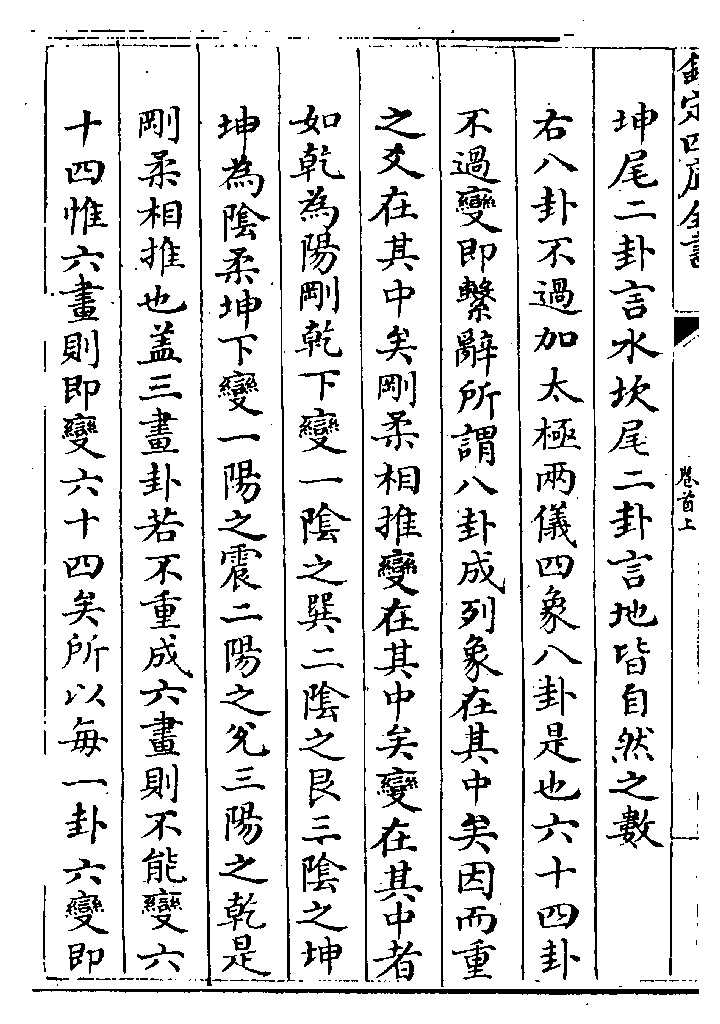 欽定四庫全書
卷首上
坤尾二卦言水坎尾二卦言地皆自然之數
右八卦不過加太極兩儀四象八卦是也六十四卦
不過變即繫辭所謂八卦成列象在其中矣因而重
之爻在其中矣剛柔相推變在其中矣變在其中者
如乾為陽剛乾下變一陰之巽二陰之艮三陰之坤
坤為陰柔坤下變一陽之震二陽之兌三陽之乾是
剛柔相推也盖三畫卦若不重成六畫則不能變六
十四惟六畫則即變六十四矣所以每一卦六變即